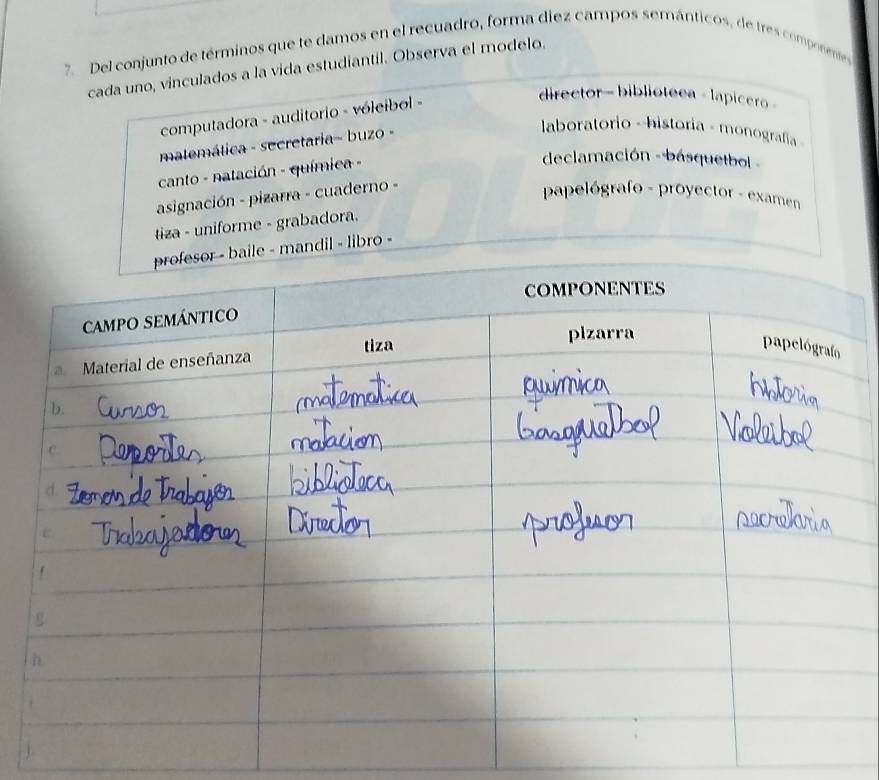 7. Del conjunto de términos que te damos en el recuadro, forma diez campos semánticos, de tres componentes
cada uno, vinculados a la vida estudiantil. Observa el modelo.
computadora - auditorio - vóleibol -
matemática - secretaria - buzo -
canto - natación - química -
asignación - pizarra - cuaderno -
tiza - uniforme - grabadora.
profesor - baile - mandil - libro -
director - biblioteca - lapicero -
laboratorio - historia - monografía
declamación - básquetbol -
papelógrafo - proyector - examen
CAMPO SEMÁNTICO COMPONENTES
a. Material de enseñanza tiza pizarra papelógrafo
b. Cursos matematica quimica historia
c Deportes natacion basquetbol Voleibol
d Zonas de Trabajos biblioteca
e Trabajadores Director profesor secretaria
f
g
h
i
j